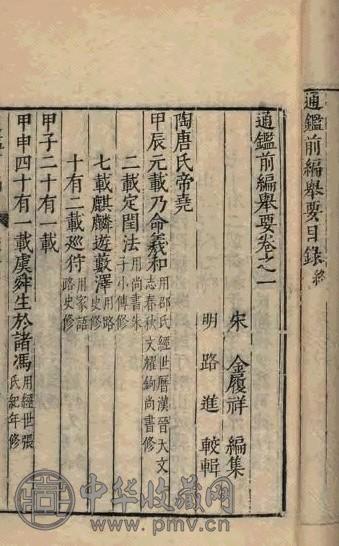 通鑑前編舉要目錄終
通鑑前編舉要卷之一
宋 金履祥 編集
明 路進 較輯
陶唐氏帝堯
甲辰元載乃命羲和用邵氏經世曆漢晉大文志春秋文耀鉤尚書修
二載定閏法用尚書朱子小傳修
七載麒麟遊藪澤用路史修
十有二載巡狩用家語路史修
甲子二十有載
甲申四十有一載虞舜生於諸馮用經世張氏紀年修
中华收藏网
www.pmv.cn